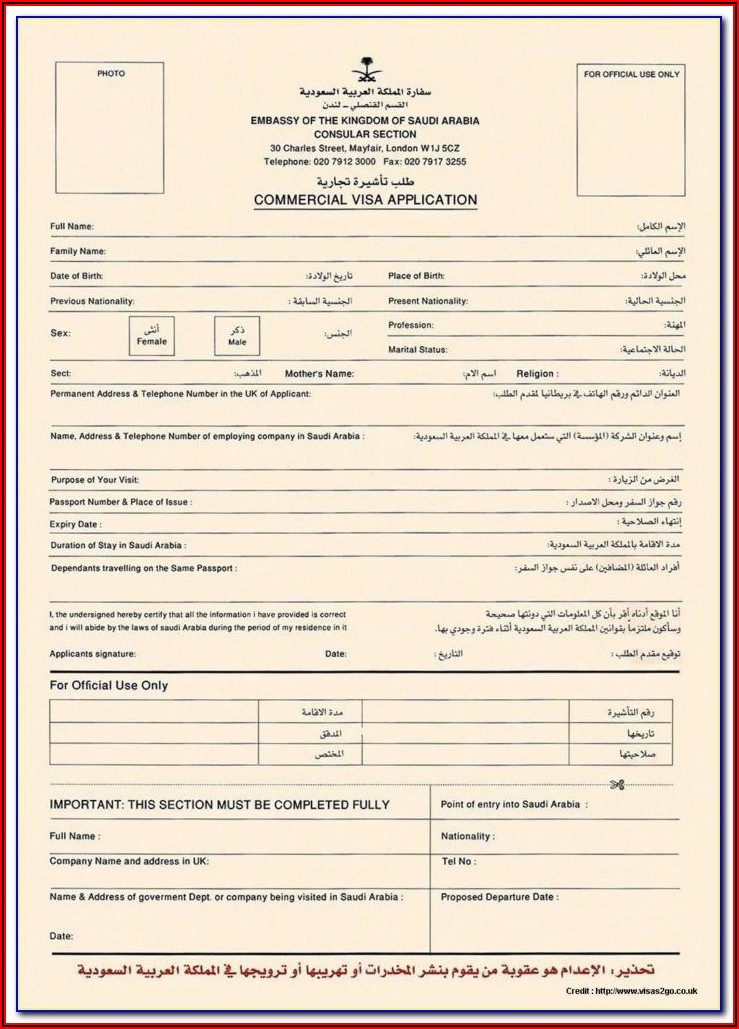 PHOTO
FOR OFFICIAL USE ONLY
سفارة المملكة العربية السعودية
القسم القنصلي - لندن
EMBASSY OF THE KINGDOM OF SAUDI ARABIA
CONSULAR SECTION
30 Charles Street, Mayfair, London W1J 5CZ
Telephone: 020 7912 3000 Fax: 020 7917 3255
طلب تأشيرة تجارية
COMMERCIAL VISA APPLICATION
Full Name: الإسم الكامل:
Family Name: الإسم العائلي:
Date of Birth: تاريخ الولادة: Place of Birth: محل الولادة:
Previous Nationality: الجنسية السابقة : Present Nationality: الجنسية الحالية:
Sex: أنثى Female ذكر Male الجنس:
Profession: المهنة:
Marital Status: الحالة الاجتماعية:
Sect: المذهب: Mother's Name: اسم الام: Religion : الديانة:
Permanent Address & Telephone Number in the UK of Applicant: العنوان الدائم ورقم الهاتف في بريطانيا لمقدم الطلب:
Name, Address & Telephone Number of employing company in Saudi Arabia : إسم وعنوان الشركة (المؤسسة) التي ستعمل معها في المملكة العربية السعودية:
Purpose of Your Visit: الغرض من الزيارة :
Passport Number & Place of Issue : رقم جواز السفر ومحل الاصدار :
Expiry Date : إنتهاء الصلاحية :
Duration of Stay in Saudi Arabia : مدة الاقامة بالمملكة العربية السعودية:
Dependants travelling on the Same Passport : أفراد العائلة (المضافين) على نفس جواز السفر:
I, the undersigned hereby certify that all the information i have provided is correct
and i will abide by the laws of saudi Arabia during the period of my residence in it
أنا الموقع أدناه أقر بأن كل المعلومات التي دونتها صحيحة
وسأكون ملتزماً بقوانين المملكة العربية السعودية أثناء فترة وجودي بها.
Applicants signature: Date: التاريخ : توقيع مقدم الطلب :
For Official Use Only
مدة الاقامة رقم التأشيرة
المدقق تاريخها
المختص صلاحيتها
IMPORTANT: THIS SECTION MUST BE COMPLETED FULLY Point of entry into Saudi Arabia :
Full Name : Nationality :
Company Name and address in UK: Tel No :
Name & Address of goverment Dept. or company being visited in Saudi Arabia : Proposed Departure Date :
Date:
تحذير: الإعدام هو عقوبة من يقوم بنشر المخدرات أو تهريبها أو ترويجها في المملكة العربية السعودية
Credit : http://www.visas2go.co.uk